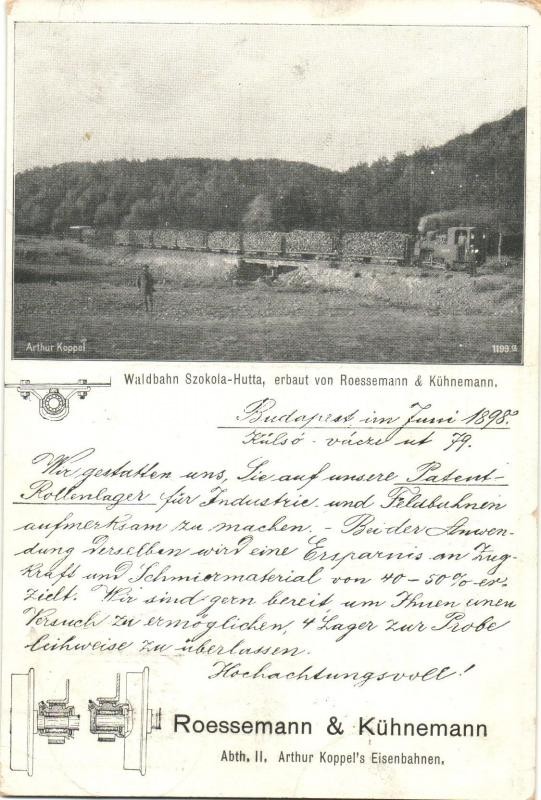 Arthur Koppel
1199 a
Waldbahn Szokola-Hutta, erbaut von Roessemann & Kühnemann.
Budapest im Juni 1898.
Külsö-váczi út 79.
Wir gestatten uns, Sie auf unsere Patent-
Rollenlager für Industrie- und Feldbahnen
aufmerksam zu machen. - Bei der Anwen-
dung derselben wird eine Ersparnis an Zug-
kraft und Schmiermaterial von 40-50% er-
zielt. Wir sind gern bereit, um Ihnen einen
Versuch zu ermöglichen, 4 Lager zur Probe
leihweise zu überlassen.
Hochachtungsvoll!
Roessemann & Kühnemann
Abth. II. Arthur Koppel's Eisenbahnen.